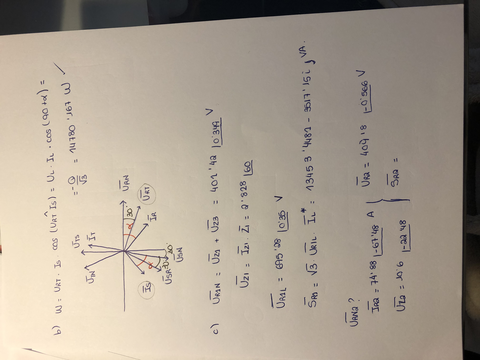 b) W = U̅RT · Is cos (U̅RT^Is) = UL · IL · cos (90+α) =
= -Q/√3 = 14780.167 W ✓
UTS
UTN
IT
URN
30°
α
URT
IR
IS
α
30
USR
USN
c) U̅R1N = U̅Z1 + U̅Z3 = 401'42 |0.349 V
U̅Z1 = I̅Z1 Z̅1 = 2'828 |60
U̅R1L = 695'28 |0.35 V
S̅R1 = √3 U̅R1L I̅L* = 13453'4482 - 3517'15i jVA.
U̅RN2?
I̅R2 = 74'88 |-67.48 A
U̅Z2 = 10'6 |-22.48
U̅R2 = 409'18 |-0.566 V
S̅R2 =